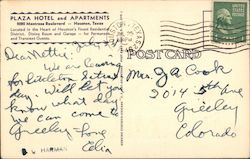 PLAZA HOTEL and APARTMENTS
5020 Montrose Boulevard — Houston, Texas
Located in the Heart of Houston's Finest Residential
District, Dining Room and Garage — for Permanent
and Transient Guests
POST CARD
Dear Nettie:
We are leaving
for
Will let you
know what day
we can come to
Greeley
Love
Celia
Mrs. J. A. Cook
3014 5th Ave
Greeley
Colorado
HARMAN